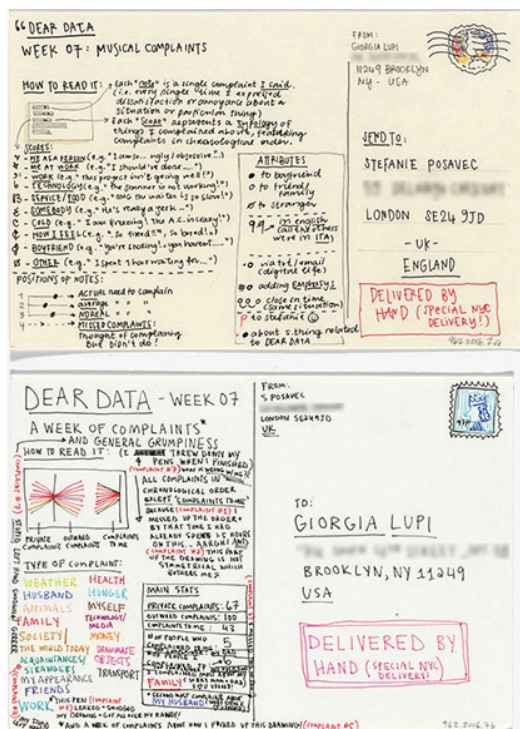 DEAR DATA
WEEK 07: MUSICAL COMPLAINTS
HOW TO READ IT:
Each "note" is a single complaint I said
(i.e. every single time I expressed
dissatisfaction or annoyance about a
situation or particular thing)
Each "score" represents a typology of
things I complained about, featuring
complaints in chronological order.
SCORES:
ME AS A PERSON (e.g. "I am so... ugly/obsessive...")
ME AT WORK (e.g. "I should've done....")
WORK (e.g. "This project isn't going well!")
TECHNOLOGY (e.g. "The scanner is not working!")
SERVICE/FOOD (e.g. "OMG the waiter is so slow!")
SOMEBODY (e.g. "He's really a jerk...")
COLD (e.g. "I am freezing! The A.C. is crazy!")
HOW I FEEL (e.g. "So tired!!", so bored!")
BOYFRIEND (e.g. "you're snoring! you haven't.....")
OTHER (e.g. "I spent 1 hour waiting for...")
POSITIONS OF NOTES:
1 ACTUAL need to complain
2 average " " "
3 NOREAL " " "
4 MISSED COMPLAINTS:
Thought of complaining
BUT DIDN'T DO!
ATTRIBUTES
to boyfriend
to friend/
family
to stranger
in english
(all the others
were in ITA)
via txt/email
(digital life)
adding EMPHASYS
close in time
(same situation)
to stefanie
about s.thing related
to DEAR DATA
FROM:
GIORGIA LUPI
11249 BROOKLYN
NY - USA
SEND TO:
STEFANIE POSAVEC
LONDON SE24 9JD
- UK -
ENGLAND
DELIVERED BY
HAND (SPECIAL NYC
DELIVERY!)
962.2016.7a
DEAR DATA - WEEK 07
A WEEK OF COMPLAINTS*
AND GENERAL GRUMPINESS
HOW TO READ IT: (I THREW DOWN MY
PENS WHEN I FINISHED)
(COMPLAINT #7) WHAT IS WRONG W/ME?
ALL COMPLAINTS IN
CHRONOLOGICAL ORDER
EXCEPT 'COMPLAINTS TO ME'
BECAUSE (COMPLAINT #1) I
MESSED UP THE ORDER &
BY THAT TIME I HAD
ALREADY SPENT 1.5 HOURS
ON THIS... AARGH! AND
(COMPLAINT #2) THIS PART
OF THE DRAWING IS NOT
SYMMETRICAL WHICH
BOTHERS ME
PRIVATE OUTWARD COMPLAINTS
COMPLAINTS COMPLAINTS TO ME
TYPE OF COMPLAINT:
WEATHER
HUSBAND
ANIMALS
FAMILY
SOCIETY/
THE WORLD TODAY
ACQUAINTANCES/
STRANGERS
MY APPEARANCE
FRIENDS
WORK
HEALTH
HUNGER
MYSELF
TECHNOLOGY/
MEDIA
MONEY
INANIMATE
OBJECTS
TRANSPORT
MAIN STATS
PRIVATE COMPLAINTS: 67
OUTWARD COMPLAINTS: 100
COMPLAINTS TO ME: 43
# OF PEOPLE WHO
COMPLAINED TO ME: 5
COMPLAINED MOST ABOUT MY
FAMILY
SECOND MOST COMPLAINED ABOUT
MY HUSBAND
THIS PEN (COMPLAINT
LEAKED + SMUDGED
MY DRAWING + GOT ALL OVER MY HANDS!
*AND A WEEK OF COMPLAINTS ABOUT HOW I F*CKED UP THIS DRAWING! (COMPLAINT #5)
FROM:
S POSAVEC
LONDON SE249JD
UK
97P
TO:
GIORGIA LUPI
BROOKLYN, NY 11249
USA
DELIVERED BY
HAND (SPECIAL NYC
DELIVERY)
962.2016.7b